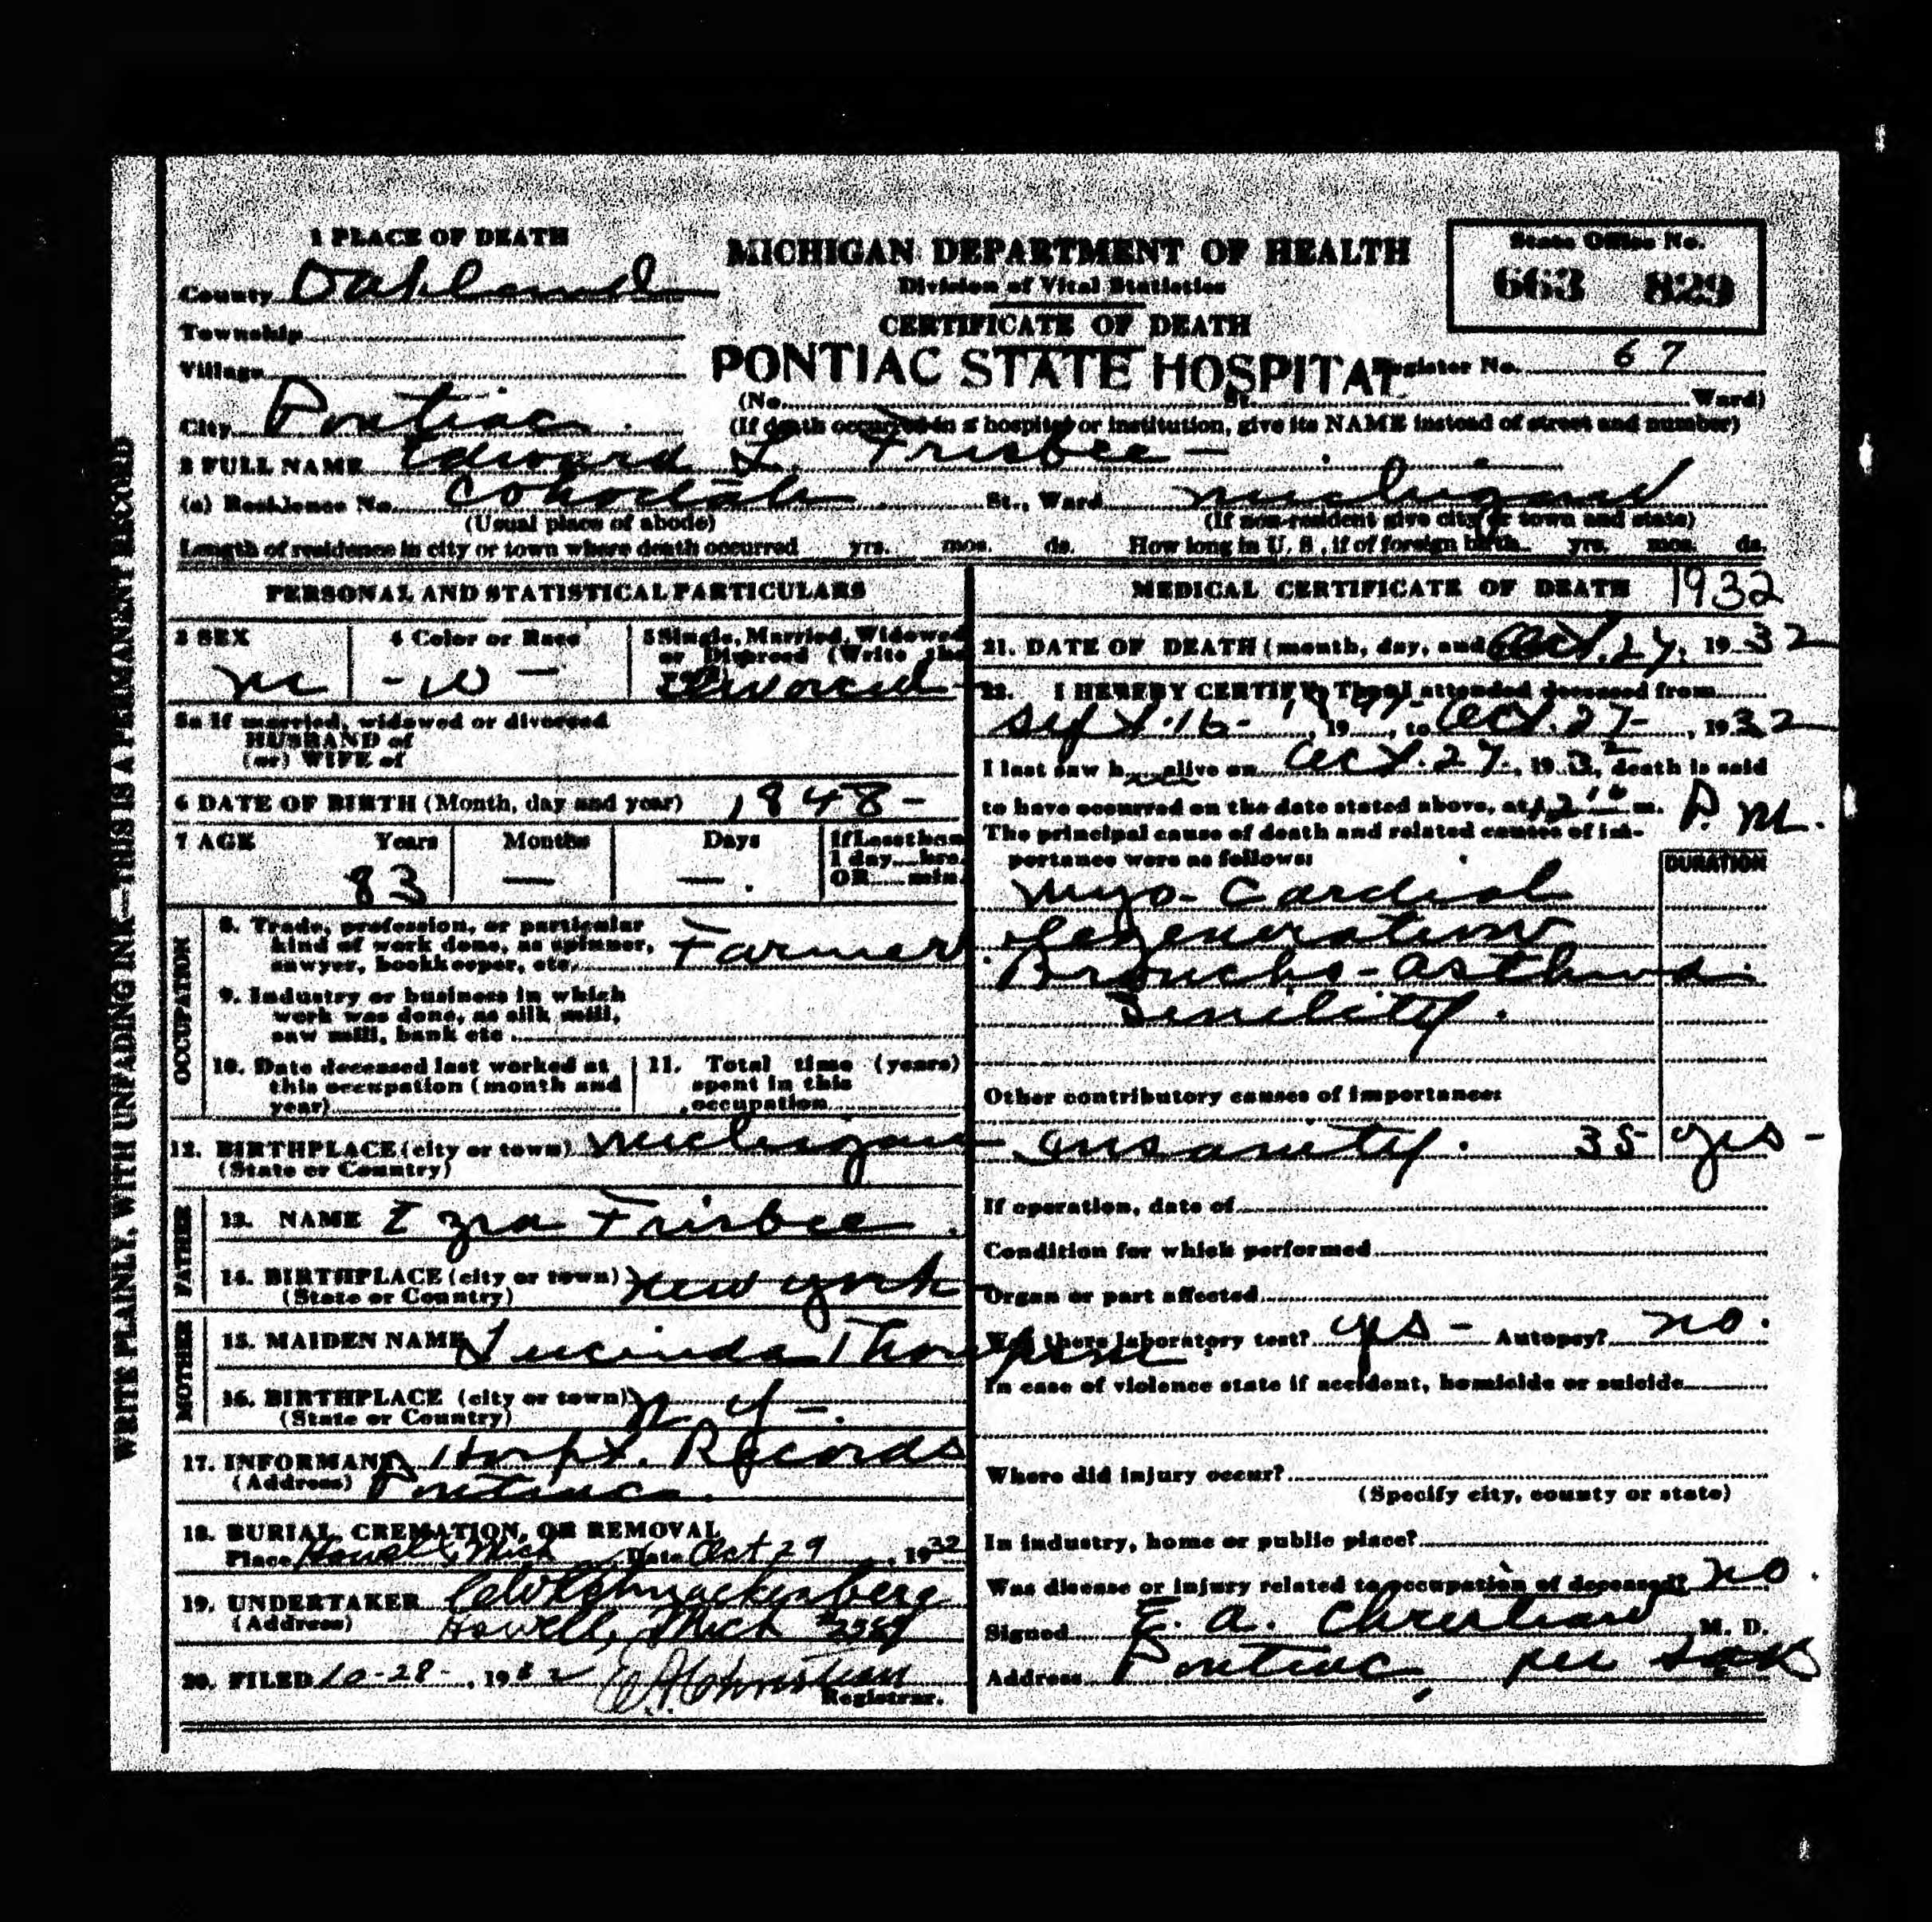 1 PLACE OF DEATH
MICHIGAN DEPARTMENT OF HEALTH
Division of Vital Statistics
CERTIFICATE OF DEATH
PONTIAC STATE HOSPITAL
State Office No.
663 829
Register No. 67
County Oakland
Township
Village
City Pontiac
(No. St. Ward)
(If death occurred in a hospital or institution, give its NAME instead of street and number)
2 FULL NAME Edward L. Frisbee -
(a) Residence No. Cohoctah St., Ward Michigan
(Usual place of abode) (If non-resident give city or town and state)
Length of residence in city or town where death occurred yrs. mos. ds. How long in U. S., if of foreign birth. yrs. mos. ds.
PERSONAL AND STATISTICAL PARTICULARS
3 SEX 4 Color or Race 5 Single, Married, Widowed
or Divorced (Write the
m - w - Divorced
5a If married, widowed or divorced
HUSBAND of
(or) WIFE of
6 DATE OF BIRTH (Month, day and year) 1848 -
7 AGE Years Months Days If Less than
1 day....hrs.
OR......min.
83 — —.
OCCUPATION
8. Trade, profession, or particular
kind of work done, as spinner,
sawyer, bookkeeper, etc. Farmer
9. Industry or business in which
work was done, as silk mill,
saw mill, bank etc
10. Date deceased last worked at
this occupation (month and
year)
11. Total time (years)
spent in this
occupation
12. BIRTHPLACE (city or town) Michigan
(State or Country)
FATHER
13. NAME Ezra Frisbee.
14. BIRTHPLACE (city or town) New York
(State or Country)
MOTHER
15. MAIDEN NAME Lucinda Thompson
16. BIRTHPLACE (city or town) N. Y -.
(State or Country)
17. INFORMANT Hospt. Records
(Address) Pontiac.
18. BURIAL, CREMATION, OR REMOVAL
Place Howell, Mich Date Oct 29, 1932
19. UNDERTAKER Schnackenberg
(Address) Howell, Mich
20. FILED 10-28-, 1932 E A Christian
Registrar.
MEDICAL CERTIFICATE OF DEATH 1932
21. DATE OF DEATH (month, day, and Oct. 27, 1932
22. I HEREBY CERTIFY, That I attended deceased from
Sept. 16- 1897, 19...., to Oct. 27-, 1932
I last saw h alive on Oct. 27, 1932, death is said
to have occurred on the date stated above, at 12 m. P. M.
The principal cause of death and related causes of im-
portance were as follows:
DURATION
Myo- Cardial
degeneration
Broncho-asthma.
Senility.
Other contributory causes of importance:
Insanity. 35 yrs -
If operation, date of
Condition for which performed
Organ or part affected
Was there laboratory test? yes - Autopsy? no.
In case of violence state if accident, homicide or suicide
Where did injury occur?
(Specify city, county or state)
In industry, home or public place?
Was disease or injury related to occupation of deceased? no.
Signed E. A. Christian, M. D.
Address Pontiac, per
WRITE PLAINLY, WITH UNFADING INK—THIS IS A PERMANENT RECORD